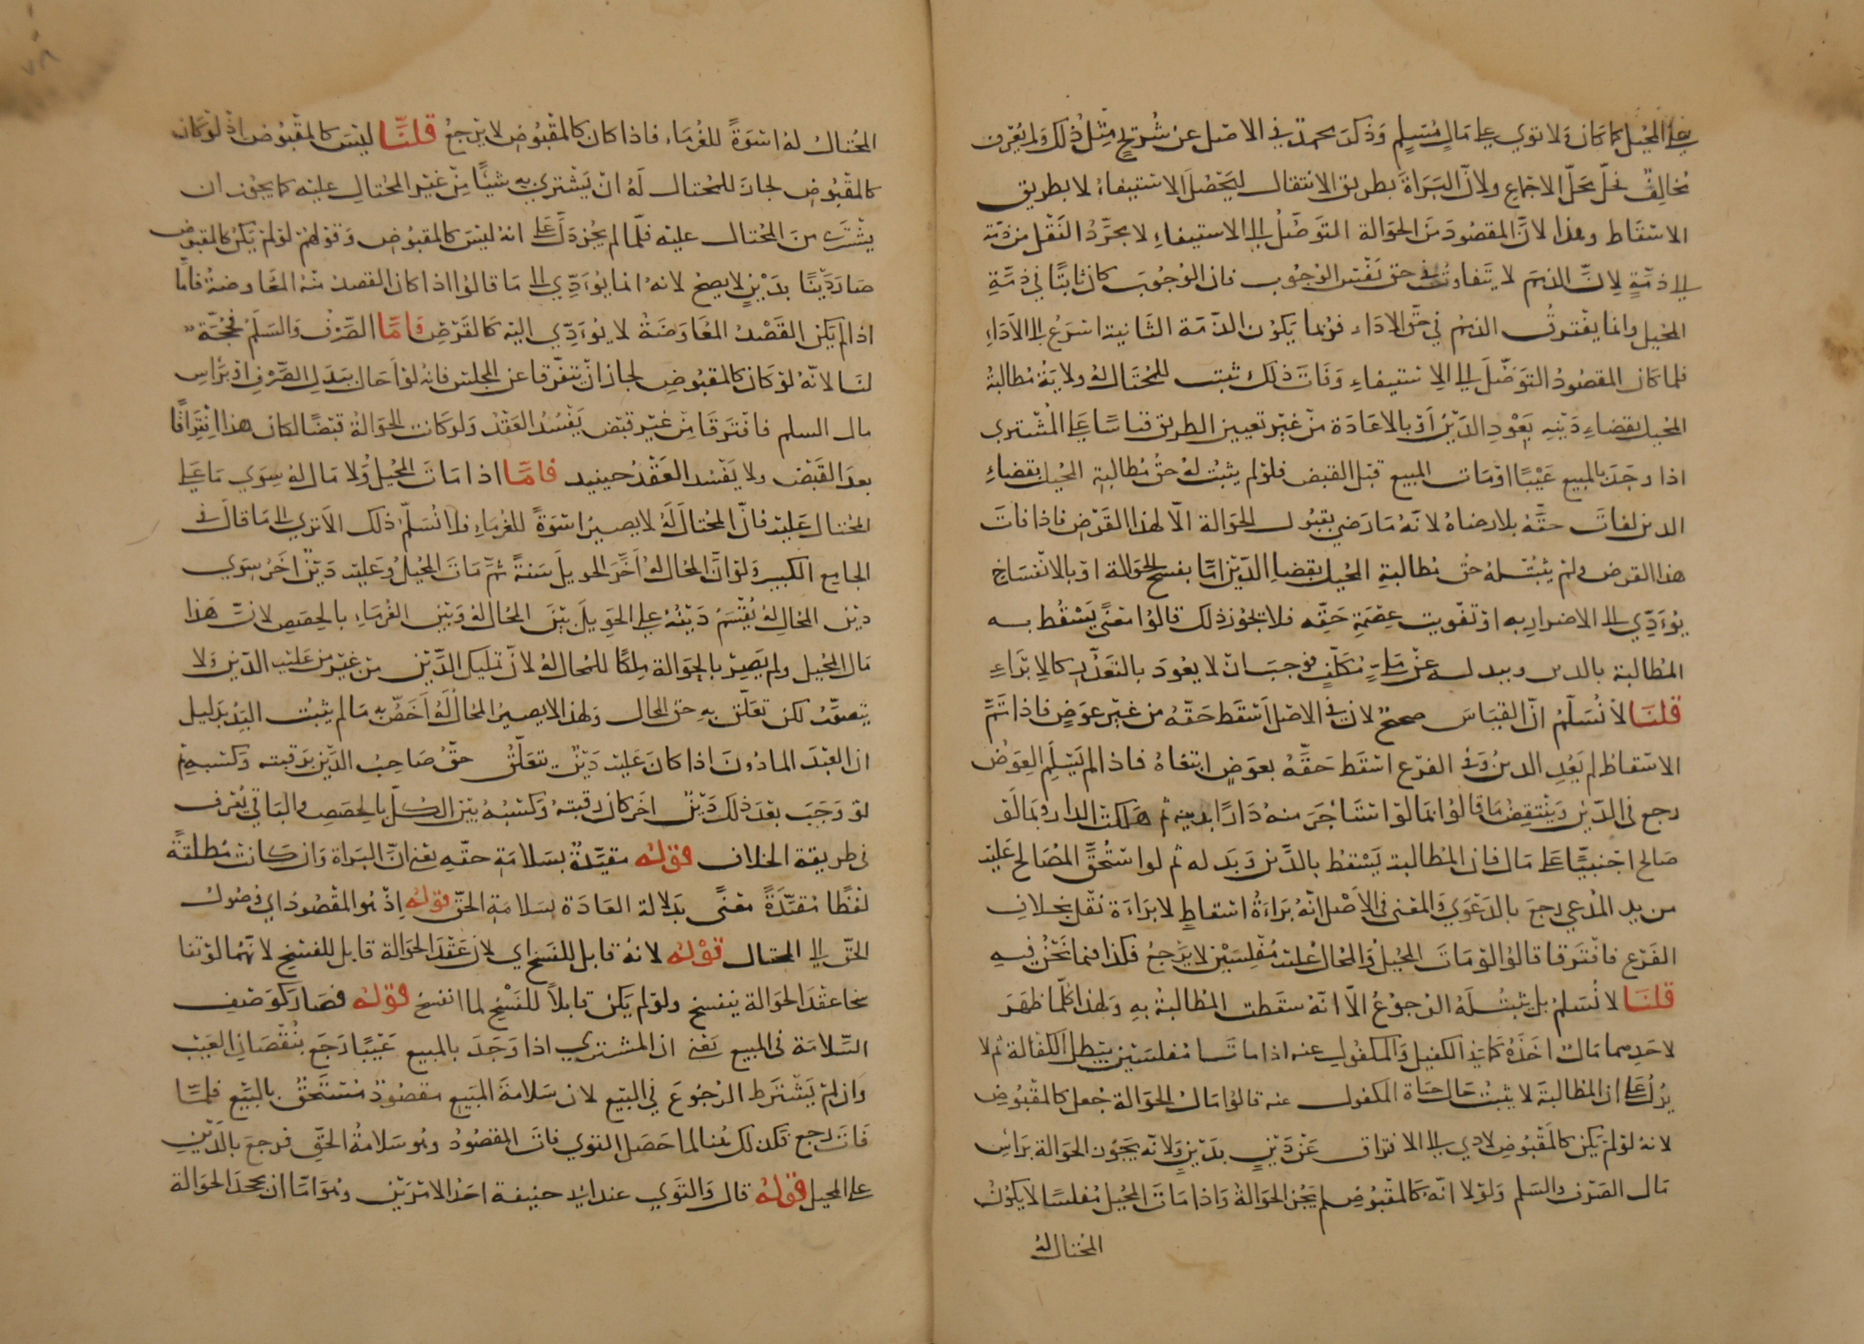 على المحيل كما كان ولا توي على مال مسلم وذكر محمد في الاصل عن شريح مثل ذلك ولم يعرف
مخالف فحل محل الاجماع ولان البراة بطريق الانتقال ليحصل الاستيفاء لا بطريق
الاسقاط وهذا لان المقصود من الحوالة التوصل الى الاستيفاء لا مجرد النقل من ذمة
الى ذمة لان الذمم لا يتفاوت في حق نفس الوجوب فان الوجوب كان ثابتا في ذمة
المحيل وانما يفترق الذمم في حق الاداء فربما يكون الذمة الثانية اسرع الى الاداء
فلما كان المقصود التوصل الى الاستيفاء وفات ذلك ثبت للمحتال له ولاية مطالبة
المحيل بقضاء دينه بعود الدين او بالاعادة من غير تعيين الطريق قياسا على المشتري
اذا وجد بالمبيع عيبا او مات المبيع قبل القبض فلو لم يثبت له حق مطالبة المحيل بقضاء
الدين لفات حقه بلا رضاه لانه ما رضي بقبول الحوالة الا لهذا الغرض فاذا فات
هذا الغرض ولم يثبت له حق مطالبة المحيل بقضاء الدين اما بفسخ الحوالة او بالانفساخ
يؤدي الى الاضرار به او تفويت عصمة حقه فلا يجوز ذلك قالوا معنى يسقط به
المطالبة بالدين وببدله عن ملئ مكلف فوجب ان لا يعود بالتعذر كالابراء
قلنا لا نسلم ان القياس صحيح لان في الاصل اسقط حقه من غير عوض فاذا تم
الاسقاط لم يعد الدين وفي الفرع اسقط حقه بعوض ابتغاه فاذا لم يسلم العوض
رجع في الدين وينتقض ما قالوا بما لو استأجر منه دارا بدينه ثم هلكت الدار وبما لو
صالح اجنبيا على مال فان المطالبة يسقط بالدين وبدله ثم لو استحق المصالح عليه
من يد المدعي رجع بالدعوي والمعنى في الاصل انه براءة اسقاط لا براءة نقل بخلاف
الفرع فافترقا قالوا لو مات المحيل والمحال عليه مفلسين لا يرجع فكذا فيما نحن فيه
قلنا لا نسلم بل يثبت له الرجوع الا انه سقطت المطالبة به ولهذا كلما ظهر
لاحدهما مال اخذه كما في الكفيل والمكفول عنه اذا ماتا مفلسين يبطل الكفالة ثم لا
يدل على ان المطالبة لا يثبت حال حياة المكفول عنه قالوا مال الحوالة جعل كالمقبوض
لانه لو لم يكن كالمقبوض لادي الى الافتراق عن دين بدين ولانه يجوز الحوالة براس
مال الصرف والسلم ولولا انه كالمقبوض لم يجز الحوالة واذا مات المحيل مفلسا لا يكون
المحتال له
المحتال له اسوة للغرماء فاذا كان كالمقبوض لا يرجع قلنا ليس كالمقبوض اذ لو كان
كالمقبوض لجاز للمحتال له ان يشتري به شيئا من غير المحتال عليه كما يجوز ان
يشتري من المحتال عليه فلما لم يجز دل على انه ليس كالمقبوض وقولهم لو لم يكن كالمقبوض
صار دينا بدين لا يصح لانه انما يؤدي الى ما قالوا اذا كان القصد منه المعاوضة فاما
اذا لم يكن القصد المعاوضة لا يؤدي اليه كالقرض فاما الصرف والسلم فحجة
لنا لانه لو كان كالمقبوض لجاز ان تفرقا عن المجلس فانه لو احال ببدل الصرف او براس
مال السلم فافترقا من غير قبض يفسد العقد ولو كانت الحوالة قبضا لكان هذا افتراقا
بعد القبض ولا يفسد العقد حينئذ فاما اذا مات المحيل ولا مال له سوي ما على
المحتال عليه فان المحتال له لا يصير اسوة للغرماء فلا نسلم ذلك الا تري الى ما قال في
الجامع الكبير ولو ان المحال له اخر الحويل سنة ثم مات المحيل وعليه دين اخر سوي
دين المحال له يقسم دينه على الحويل بين المحال له وبين الغرماء بالحصص لان هذا
مال المحيل ولم يصر بالحوالة ملكا للمحال له لان تمليك الدين من غير من عليه الدين لا
يتصور لكن تعلق به حق المحال ولهذا لا يصير المحال له اخص به ما لم يثبت اليد بدليل
ان العبد الماذون اذا كان عليه دين يتعلق حق صاحب الدين برقبته وكسبه ثم
لو وجب بعد ذلك دين اخر كان رقبته وكسبه بين الكل بالحصص والباقي يعرف
في طريقة الخلاف قوله مقيدة بسلامة حقه يعني ان البراة وان كانت مطلقة
لفظا مقيدة معنى بدلالة العادة بسلامة الحق قوله اذ هو المقصود اي وصول
الحق الى المحتال قوله لانه قابل للفسخ اي لان عقد الحوالة قابل للفسخ لانهما لو تفا
سخا عقد الحوالة ينفسخ ولو لم يكن قابلا للفسخ لما انفسخ قوله فصار كوصف
السلامة في المبيع يعني ان المشتري اذا وجد بالمبيع عيبا رجع بنقصان العيب
وان لم يشترط الرجوع في البيع لان سلامة المبيع مقصود مستحق بالبيع فلما
فات رجع فكذلك هنا لما حصل التوي فات المقصود وهو سلامة الحق فرجع بالدين
على المحيل قوله قال والتوي عند ابي حنيفة احد الامرين وهو اما ان يجحد الحوالة